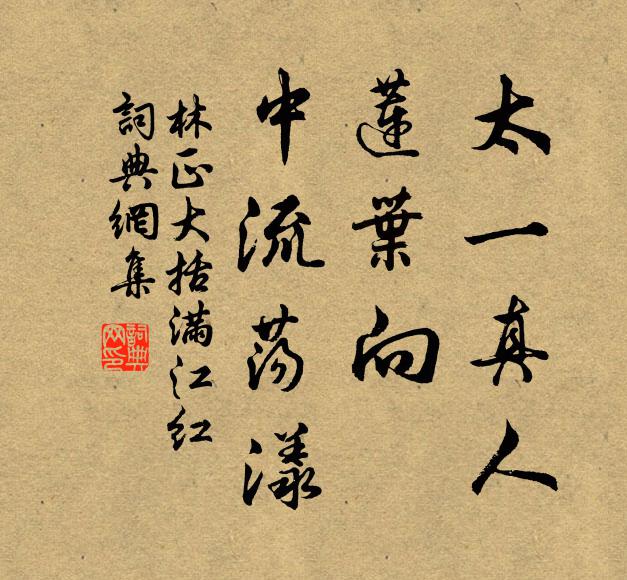 太一真人
蓮葉向
中流蕩漾
林正大括滿江紅
詞典網集
詞典网印